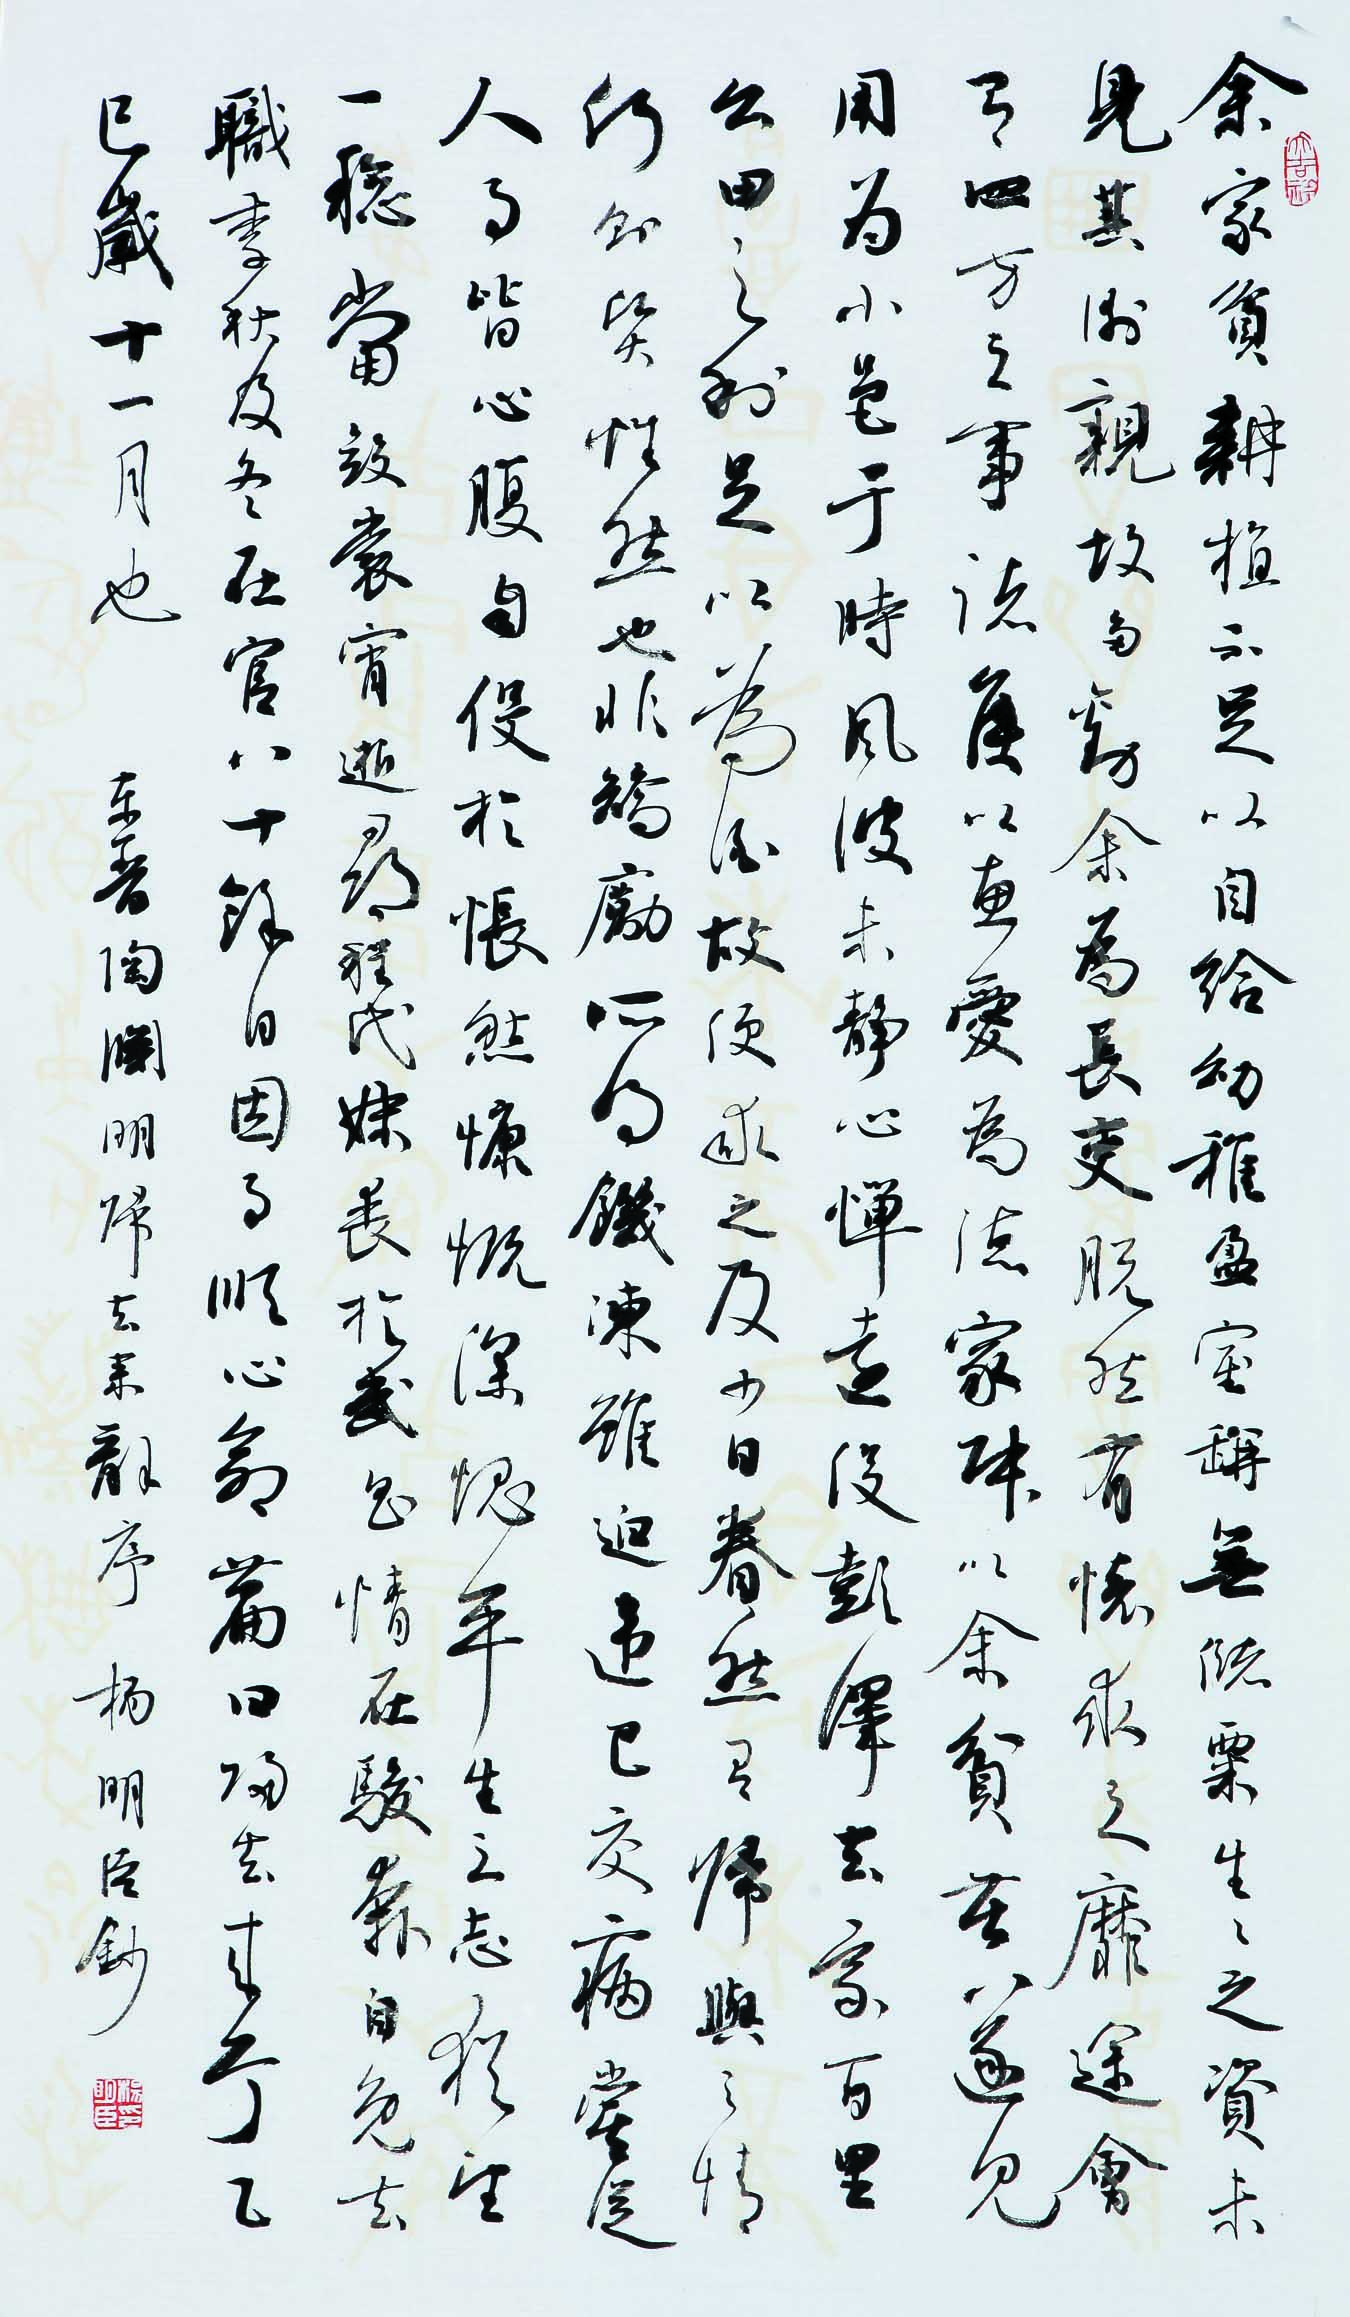 余家貧耕植不足以自給幼稚盈室缾無儲粟生々之資未
見其術親故多勸余為長吏脫然有懷求之靡途會
有四方之事諸侯以惠愛為德家叔以余貧苦遂見
用為小邑于時風波未靜心憚遠役彭澤去家百里
公田之利足以為酒故便求之及少日眷然有歸與之情
何則質性然也非矯勵所得饑凍雖迫違己交病嘗從
人事皆心腹自役於悵然慷慨深愧平生之志猶望
一稔當斂裳宵逝尋程氏妹喪於武昌情在駿奔自免去
職季秋及冬在官八十餘日因事順心命篇曰歸去來兮乙
巳歲十一月也 東晉陶淵明歸去來辭序 楊明臣鈔